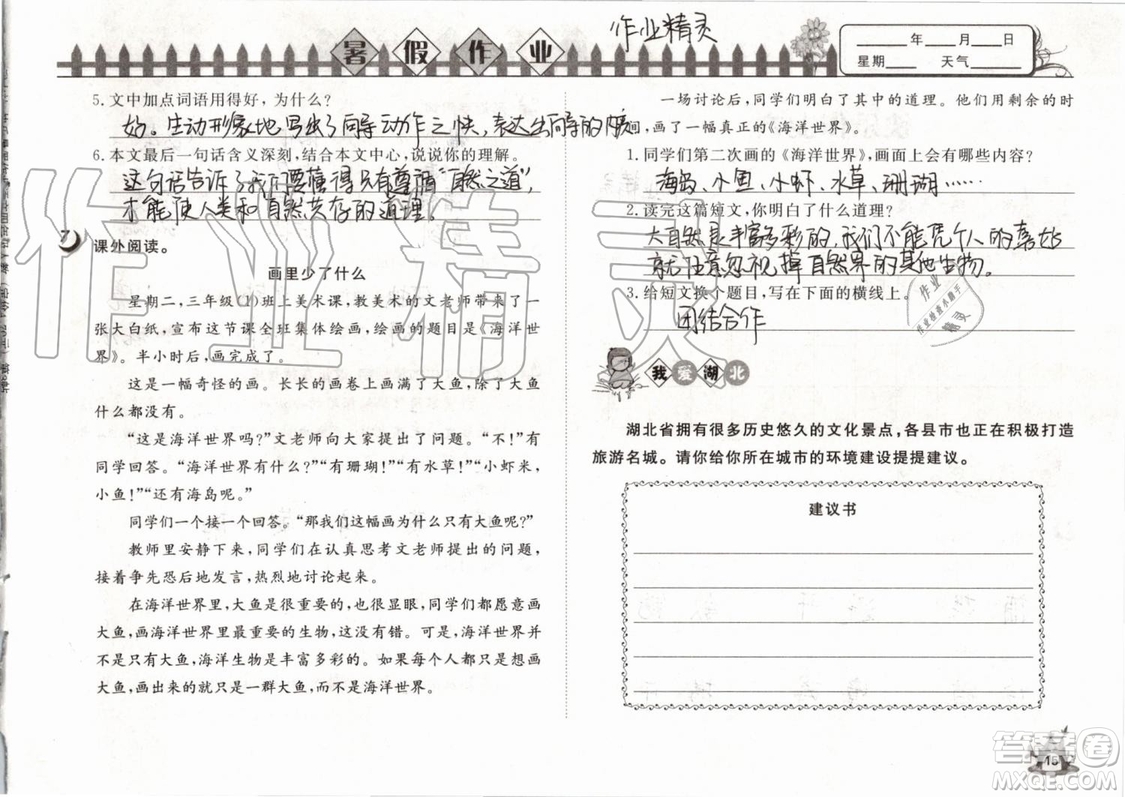 暑假作业
作业精灵
年 月 日
星期 天气
5. 文中加点词语用得好，为什么？
妙。生动形象地写出了向导动作之快，表达出向导的内疚
6. 本文最后一句话含义深刻，结合本文中心，说说你的理解。
这句话告诉了我们要懂得只有尊循“自然之道”，
才能使人类和自然共存的道理。
7
课外阅读。
画里少了什么
星期二，三年级(1)班上美术课，教美术的文老师带来了一
张大白纸，宣布这节课全班集体绘画，绘画的题目是《海洋世
界》。半小时后，画完成了。
这是一幅奇怪的画。长长的画卷上画满了大鱼，除了大鱼
什么都没有。
“这是海洋世界吗？”文老师向大家提出了问题。“不！”有
同学回答。“海洋世界有什么呢？”“有珊瑚！”“有水草！”“小虾米，
小鱼！”“还有海岛呢。”
同学们一个接一个回答。“那我们这幅画为什么只有大鱼呢？”
教师里安静下来，同学们在认真思考文老师提出的问题，
接着争先恐后地发言，热烈地讨论起来。
在海洋世界里，大鱼是很重要的，也很显眼，同学们都愿意画
大鱼，画海洋世界里最重要的生物，这没有错。可是，海洋世界并
不是只有大鱼，海洋生物是丰富多彩的。如果每个人都只画
大鱼，画出来的就只是一群大鱼，而不是海洋世界。
一场讨论后，同学们明白了其中的道理。他们用剩余的时
间，画了一幅真正的《海洋世界》。
1. 同学们第二次画的《海洋世界》，画面上会有哪些内容？
海岛、小鱼、小虾、水草、珊瑚……
2. 读完这篇短文，你明白了什么道理？
大自然是丰富多彩的，我们不能凭个人的喜好
就任意忽视掉自然界的其他生物。
3. 给短文换个题目，写在下面的横线上。
团结合作
我爱湖北
湖北省拥有很多历史悠久的文化景点，各县市也正在积极打造
旅游名城。请你给你所在城市的环境建设提提建议。
建议书
15
作业精灵
答案圈
MXQE.COM